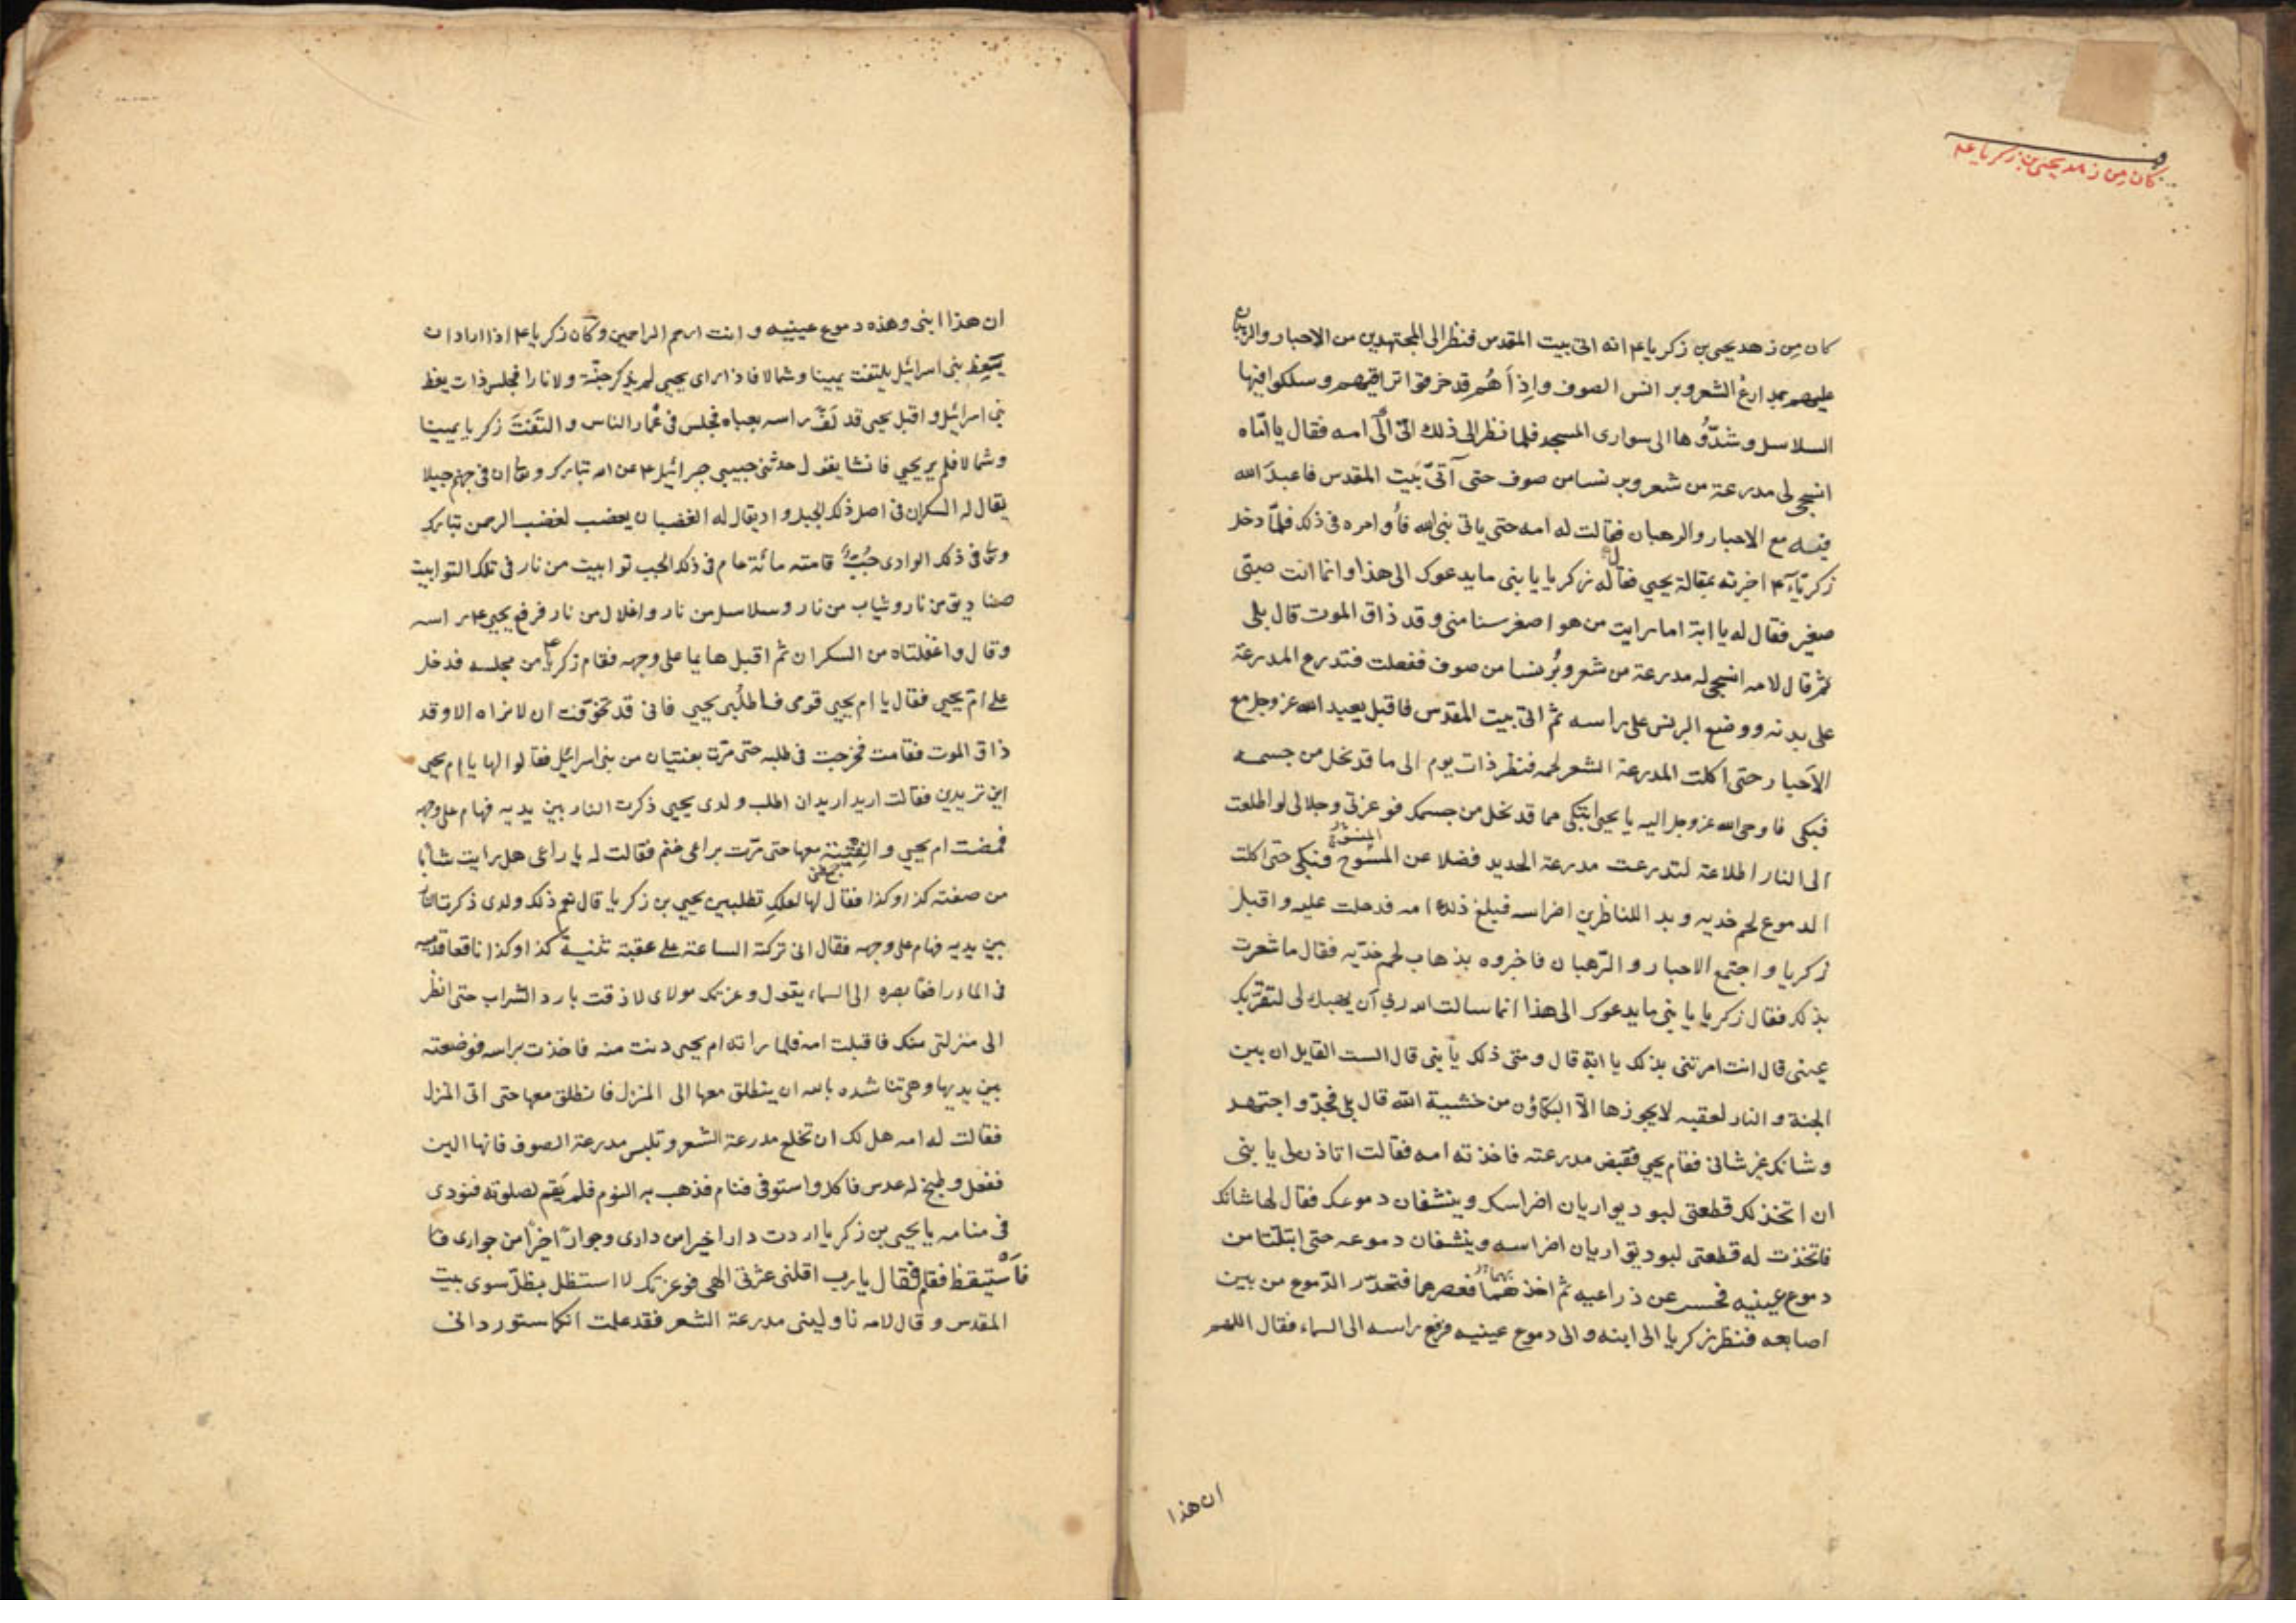 كان من زهد يحيى بن زكريا ع
كان مِن زهد يحيى بن زكريا ع انه اتى بيت المقدس فنظر الى المجتهدين من الاحبار والرهبان
عليهم مدارع الشعر وبرانس الصوف واِذاَ هُم قد خرقوا تراقيهم وسلكوا فيها
السلاسل وشدّوُها الى سوارى المسجد فلما نظر الى ذلك اتى الى امه فقال يا امّاه
انسجى لى مدرعة من شعر وبرنسا من صوف حتى آتىَ بَيت المقدس فاعبدَ الله
فيه مع الاحبار والرهبان فقالت له امه حتى ياتى نبى الله فأُوامره فى ذلك فلمّا دخل
زكريّا ع اخبرته بمقالة يحيى فقال له زكريا يا بنى ما يدعوك الى هذا وانما انت صبىّ
صغير فقال له يا ابة اما رايت من هو اصغر سنا منى وقد ذاق الموت قال بلى
ثم قال لامه انسجى له مدرعة من شعر وبُرنسا من صوف ففعلت فتدرع المدرعة
على بدنه ووضع البرنس على راسه ثم اتى بيت المقدس فاقبل يعبد الله عز وجل مع
الاَحبار حتى اكلت المدرعة الشعر لحمه فنظر ذات يوم الى ما قد نحل من جسمه
فبكى فاوحى الله عز وجل اليه يا يحيى اتبكى مما قد نحل من جسمك فوعزتى وجلالى لو اطلعت
الى النار اطلاعة لتدرعت مدرعة الحديد فضلا عن المسُوح المنسوج فبكى حتى اكلت
الدموع لحم خديه وبدا للناظرين اضراسه فبلغ ذلك امه فدخلت عليه واقبل
زكريا واجتمع الاحبار والرّهبان فاخبروه بذهاب لحم خدّيه فقال ما شعرت
بذلك فقال زكريا يا بنى ما يدعوك الى هذا انما سالت الله ربى اَن يهبك لى لتقرّ بك
عينى قال انت امرتنى بذلك يا ابة قال ومتى ذلك يا بنى قال الست القايل ان بين
الجنة و النار لعقبه لا يجوزها الاّ البكّاؤن من خشية الله قال بلى فجدّ واجتهد
وشانك غير شانى فقام يحيى فنفض مدرعته فاخذته امه فقالت اتاذن لى يا بنى
ان اتخذ لك قطعتى لبود يواريان اضراسك وينشفان دموعك فقال لها شانك
فاتخذت له قطعتى لبود يواريان اضراسه وينشفان دموعه حتى ابتلّتا من
دموع عينيه فحسر عن ذراعيه ثم اخذهما فعصرهما فتحدّر الدّموع من بين
اصابعه فنظر زكريا الى ابنه والى دموع عينيه فرفع راسه الى السماء فقال اللهم
ان هذا
ان هذا ابنى وهذه دموع عينيه وانت ارحم الراحمين وكان زكريا ع اذا اراد ان
يَعِظ بنى اسرائيل يلتفت يمينا وشمالا فاذا راى يحيى لم يذكر جنّة ولا نارا فجلس ذات يعظ
بنى اسرائيل واقبل يحيى قد لَفَّ راسه بعباه فجلس فى غُمار الناس والتفَتَ زكريا يمينا
وشمالا فلم ير يحيى فانشا يقول حدثنى حبيبى جبرائيل ع عن الله تبارك وتعا ان فى جهنم جبلا
يقال له السكران فى اصل ذلك الجبل واد يقال له الغضبان يغضب لغضب الرحمن تبارك
وتعا فى ذلك الوادى جُبٌّ قامته مائة عام فى ذلك الجب توابيت من نار فى تلك التوابيت
صناديق من نار وثياب من نار وسلاسل من نار واغلال من نار فرفع يحيى ع راسه
وقال واغفلتاه من السكران ثم اقبل هايما على وجهه فقام زكريا ع من مجلسه فدخل
على ام يحيى فقال يا ام يحيى قومى فاطلُبى يحيى فانى قد تخوّفت ان لا نراه الا وقد
ذاق الموت فقامت فخرجت فى طلبه حتى مرّت بفتيان من بنى اسرائيل فقالوا لها يا ام يحيى
اين تريدين فقالت اريد اريد ان اطلب ولدى يحيى ذكرت النار بين يديه فهام على وجهه
فمضت ام يحيى والفِتْيَة معها حتى مرّت براعى غنم فقالت له يا راعى هل رايت شابا
من صفته كذا وكذا فقال لها لعلكِ تطلبين يحيى بن زكريا قال نعم ذلك ولدى ذكرت النار
بين يديه فهام على وجهه فقال انى تركته الساعة على عقبة ثنية كذا وكذا ناقعا قدميه
فى الماء رافعا بصره الى السماء يقول وعزتك مولاى لا ذقت بارد الشراب حتى انظر
الى منزلتى منك فاقبلت امه فلما راته ام يحيى دنت منه فاخذت براسه فوضعته
بين يديها وهى تناشده بالله ان ينطلق معها الى المنزل فانطلق معها حتى اتى المنزل
فقالت له امه هل لك ان تخلع مدرعة الشعر وتلبس مدرعة الصوف فانها الين
ففعل وطبخ له عدس فاكل واستوفى فنام فذهب به النوم فلم يَقم لصلوته فنودى
فى منامه يا يحيى بن زكريا اردت دارا خيرا من دارى وجوارًا خيرًا من جوارى
فاَسْتيقظ فقام فقال يا رب اقلنى عثرتى الهى فوعزتك لا استظل بظلّ سوى بيت
المقدس وقال لامه ناولينى مدرعة الشعر فقد علمت انكما ستوردانى